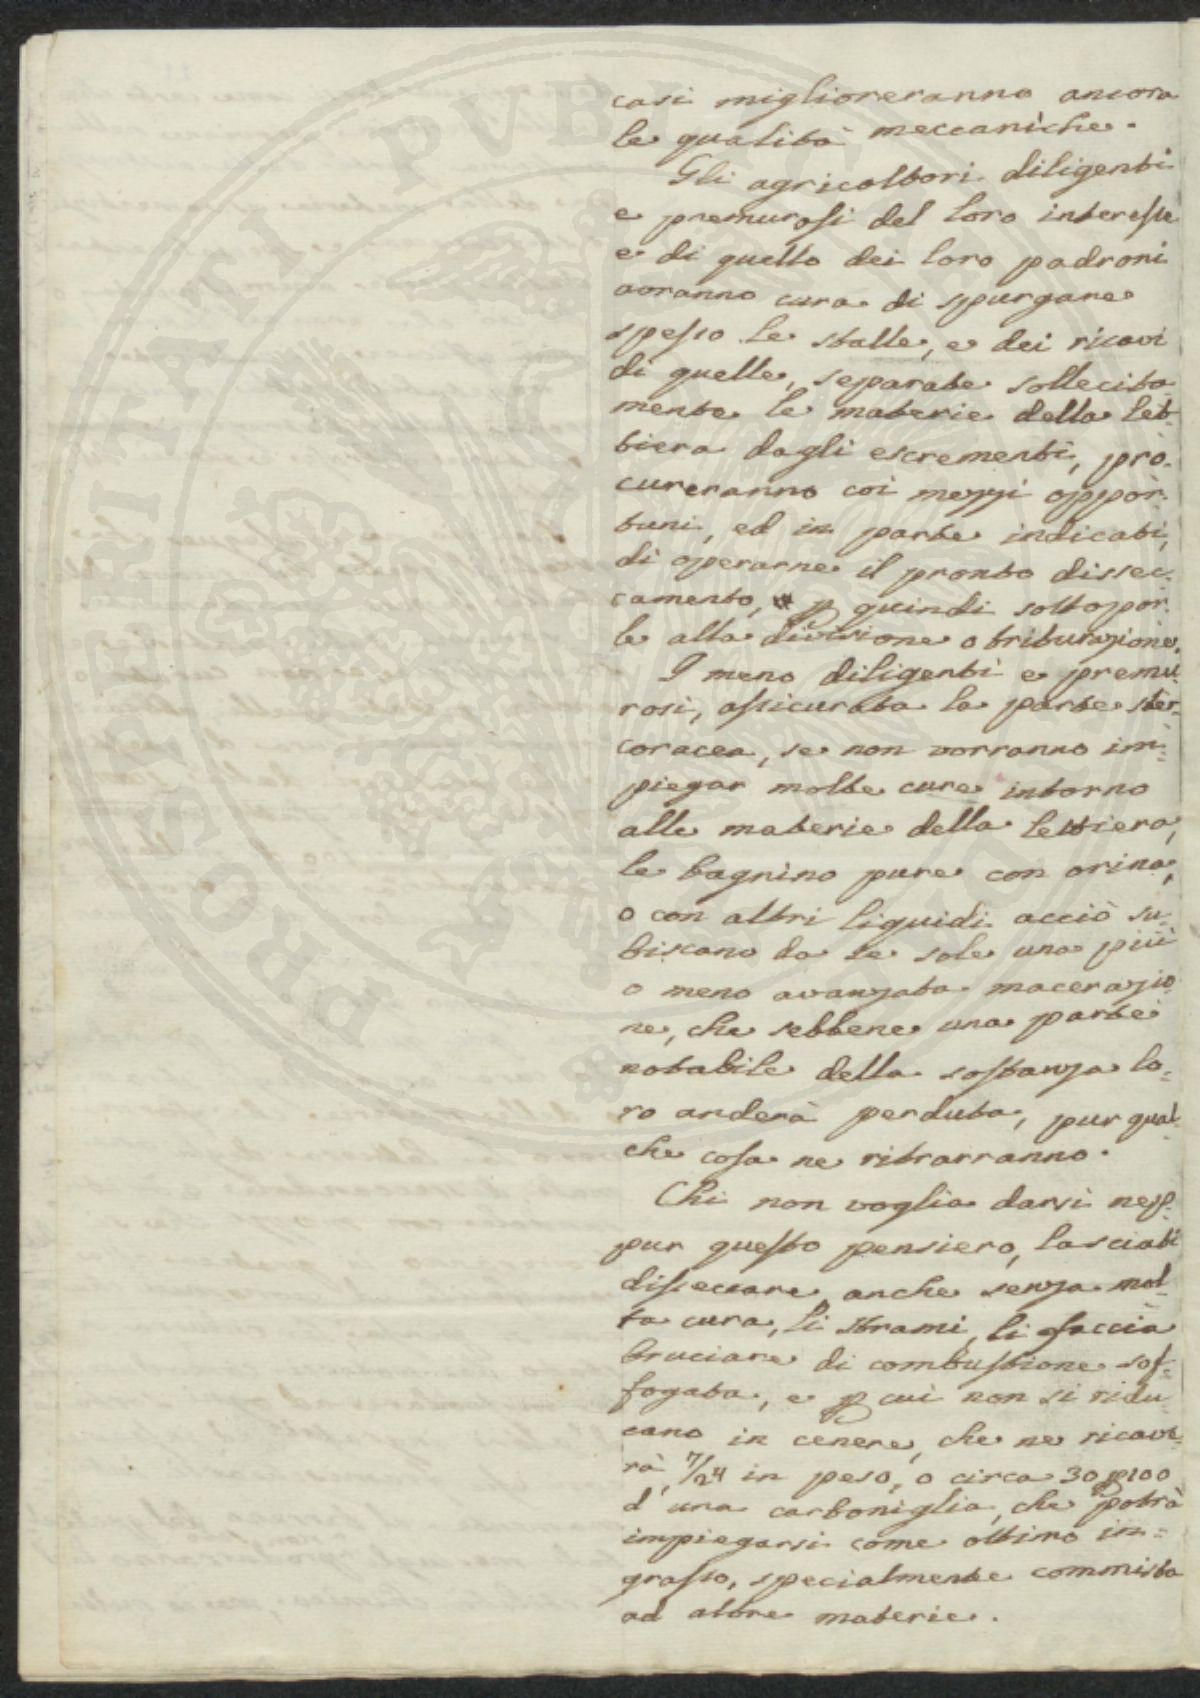 casi miglioreranno ancora
le qualità meccaniche.
Gli agricoltori diligenti
e premurosi del loro interesse
e di quello dei loro padroni
avranno cura di spurgare
spesso le stalle, e dei ricavi
di quelle, separate sollecita-
mente le materie della let-
tiera dagli escrementi, pro-
cureranno coi mezzi oppor-
tuni, ed in parte indicati,
di operarne il pronto dissec-
camento, p quindi sottopor-
le alla divisione o triturazione.
I meno diligenti e premu-
rosi, assicurata la parte ster-
coracea, se non vorranno im-
piegar molte cure intorno
alle materie della lettiera,
le bagnino pure con orina,
o con altri liquidi acciò su-
biscano da se sole una più
o meno avanzata macerazio-
ne, che sebbene una parte
notabile della sostanza lo-
ro anderà perduta, pur qual-
che cosa ne ritrarranno.
Chi non voglia darsi nep-
pur questo pensiero, lasciati
disseccare anche senza mol-
ta cura, li strami, li faccia
bruciare di combustione sof-
fogata, e p cui non si ridu-
cano in cenere, che ne ricave-
rà 7/24 in peso, o circa 30 p 100
d'una carboniglia, che potrà
impiegarsi come ottimo in-
grasso, specialmente commista
ad altre materie.
PROSPERITATI PUBLICAE